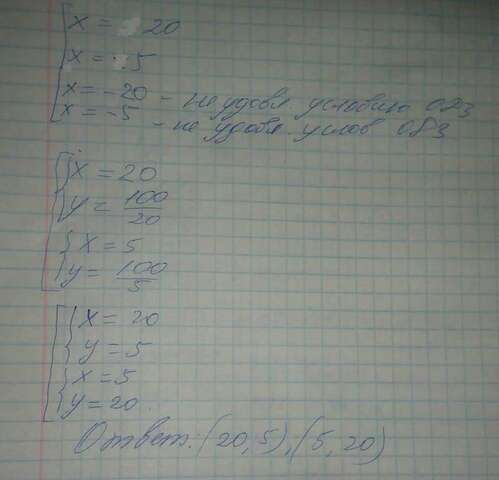 x = 20
x = 5
x = -20 - не удовл условию ОДЗ
x = -5 - не удовл. услов ОДЗ
x = 20
y = 100/20
x = 5
y = 100/5
x = 20
y = 5
x = 5
y = 20
Ответ: (20, 5), (5, 20)